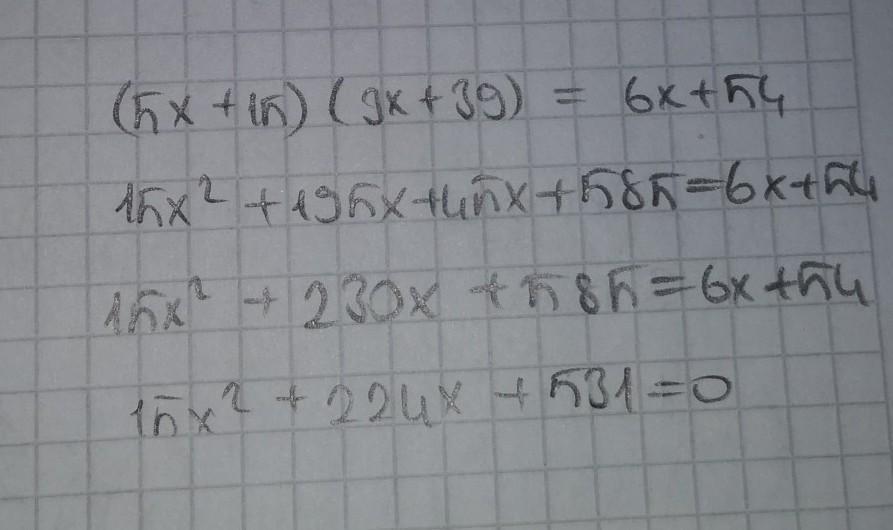 (5x + 15) (9x + 39) = 6x + 54
15x² + 195x + 45x + 585 = 6x + 54
15x² + 230x + 585 = 6x + 54
15x² + 224x + 531 = 0